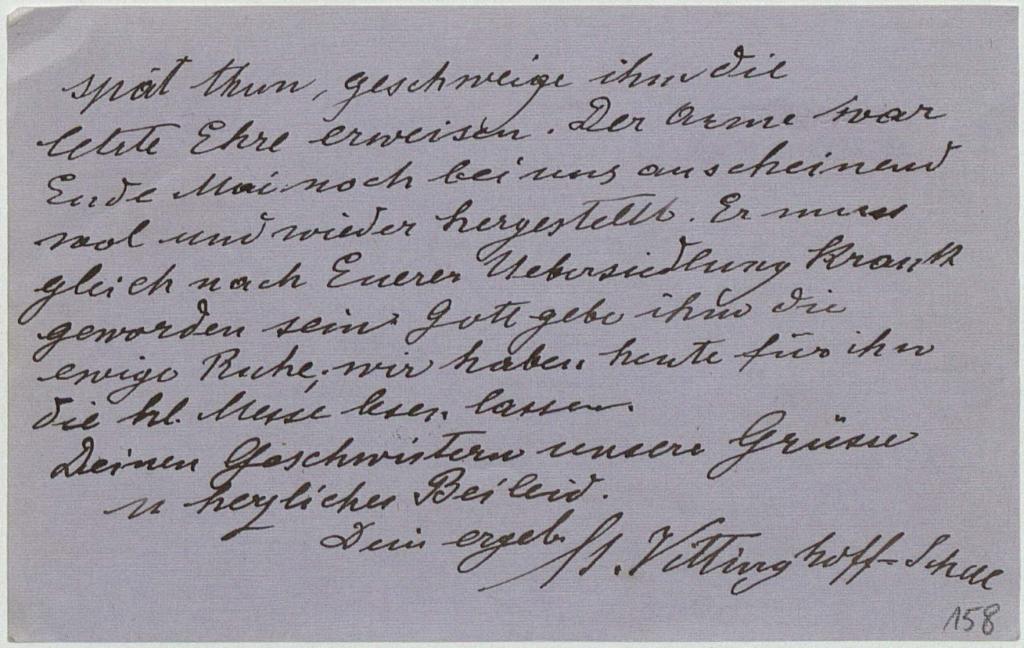 spät thun, geschweige ihm die
letzte Ehre erweisen. Der Arme war
Ende Mai noch bei uns anscheinend
wol und wieder hergestellt. Er muss
gleich nach Euerer Uebersiedlung krank
geworden sein. Gott gebe ihm die
ewige Ruhe, wir haben heute für ihn
die hl. Messe lesen lassen.
Deinen Geschwistern unsere Grüsse
u herzliches Beileid.
Dein ergeb.
Vittinghoff-Schell
158